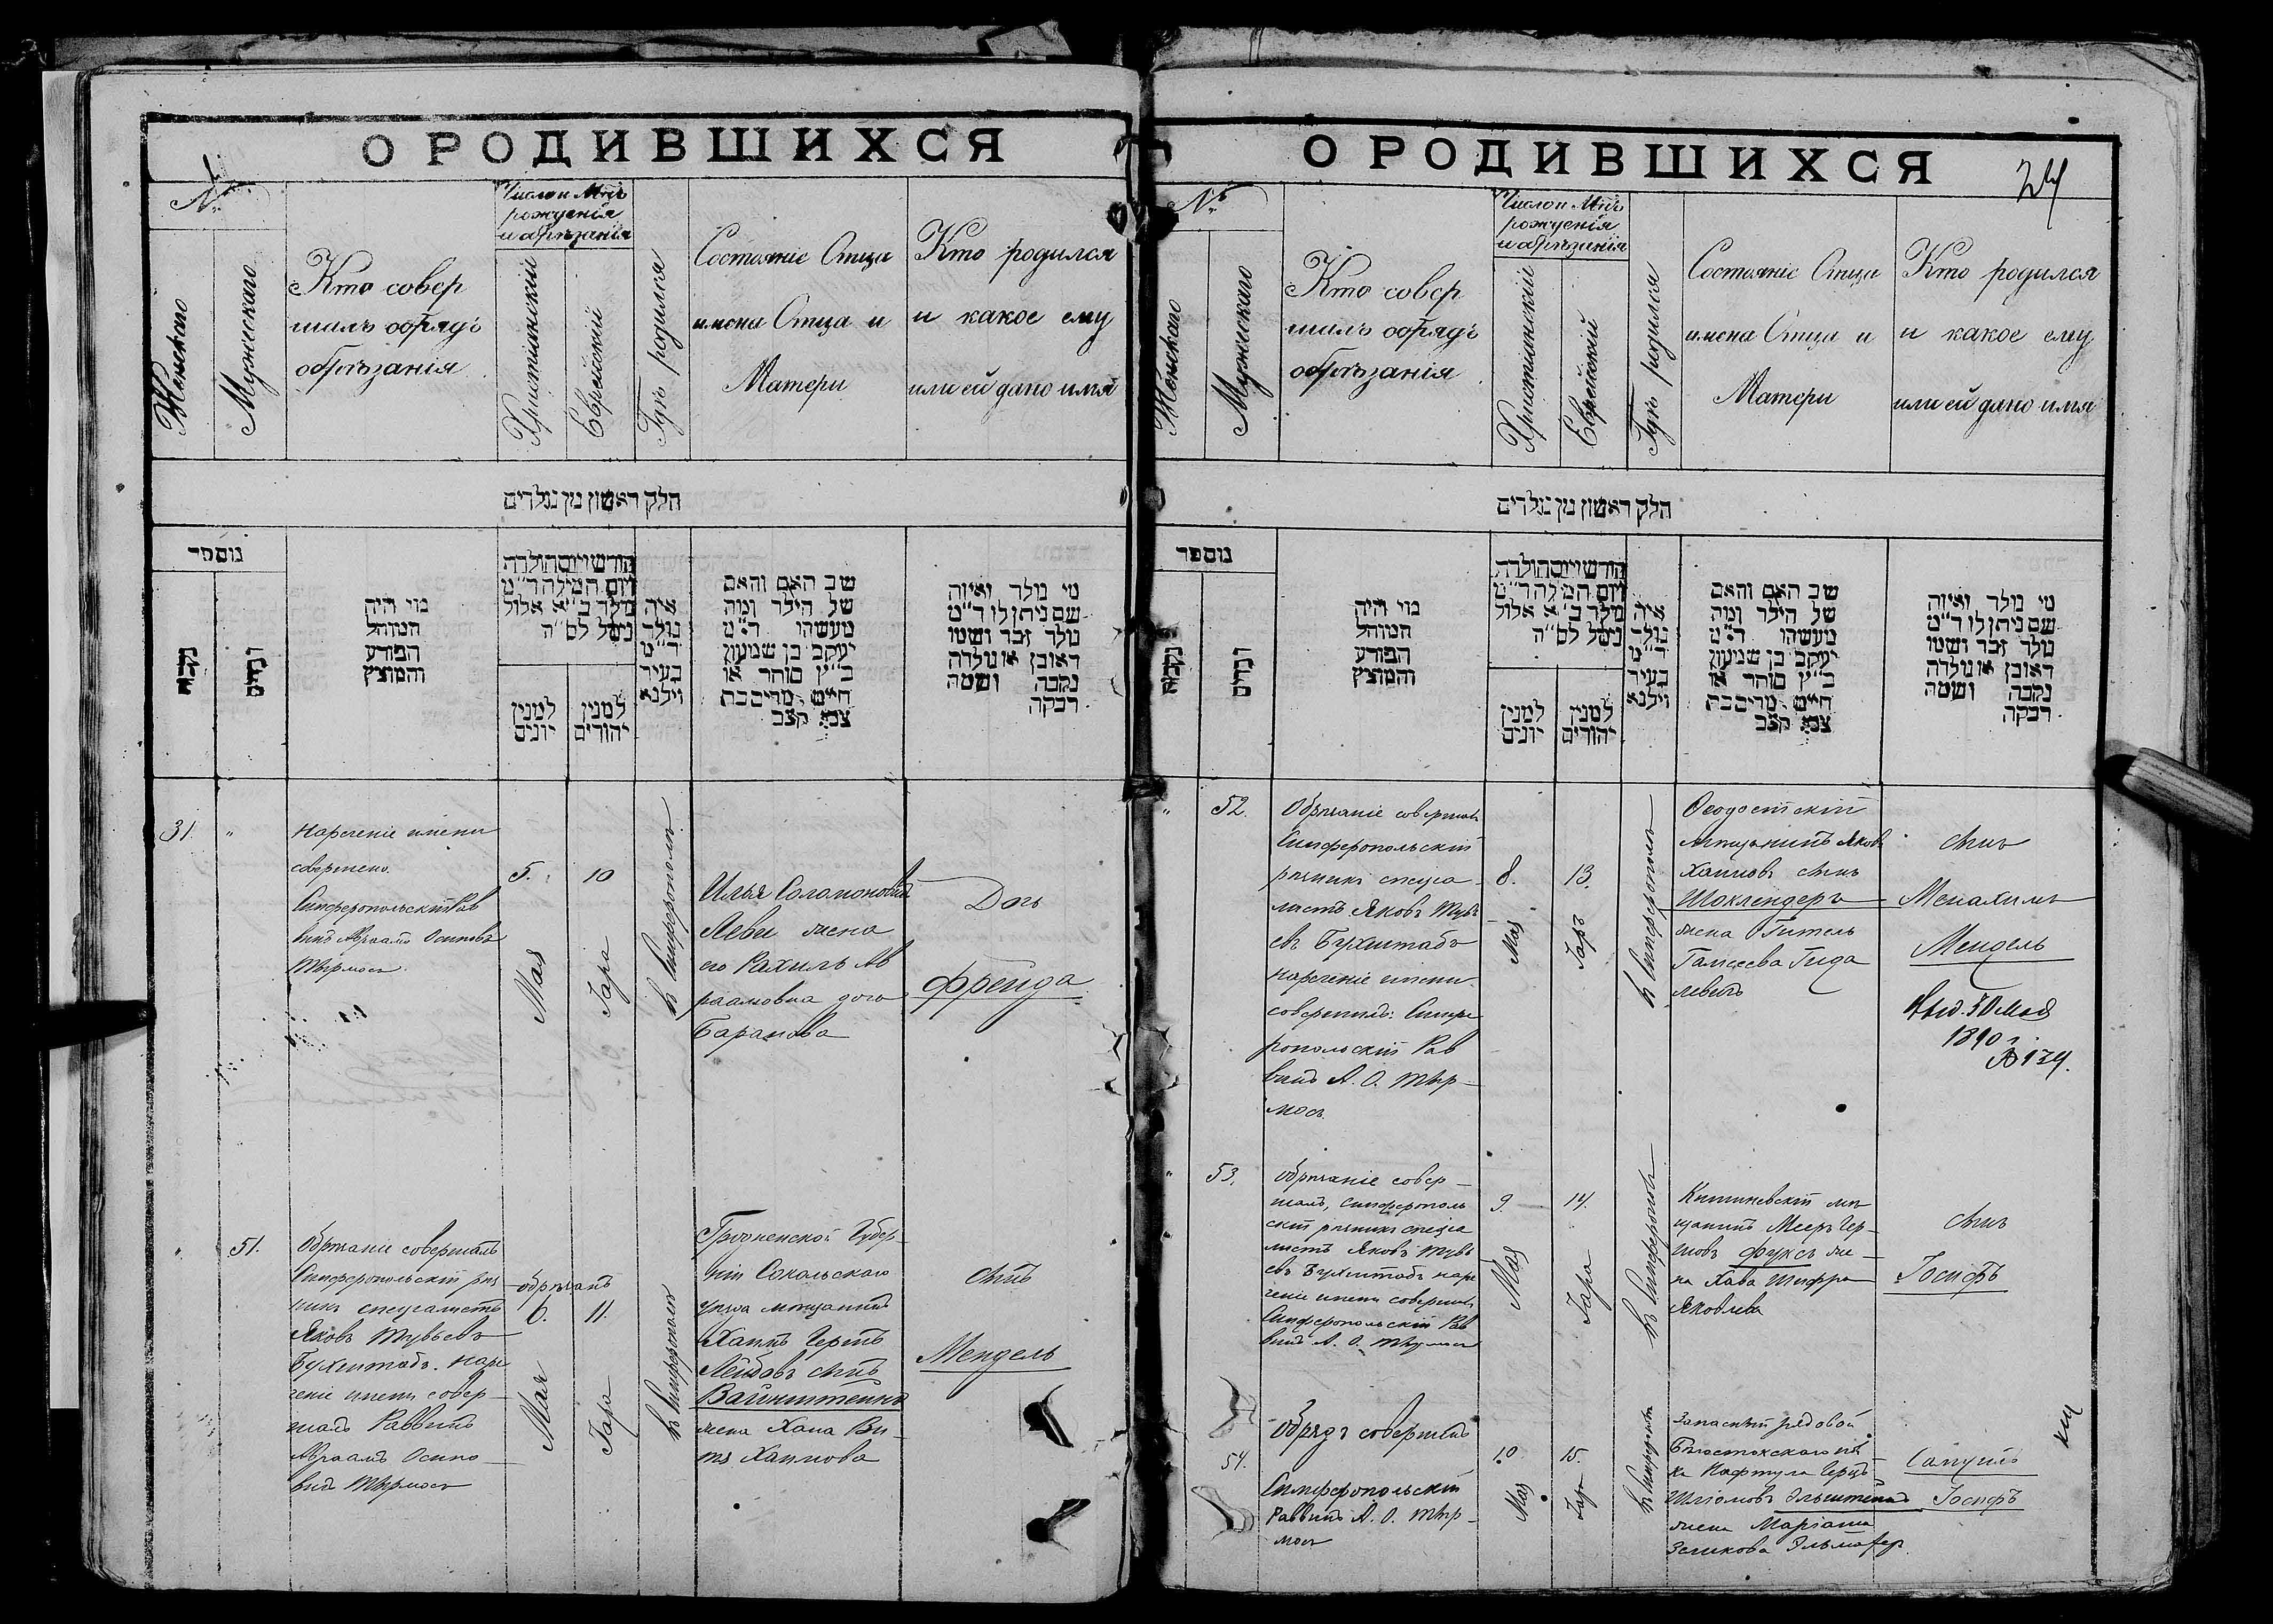 О РОДИВШИХСЯ
№
Женскаго
Мужескаго
Кто совер
шилъ обрядъ
обрѣзанія
Число и Мѣсъ
рожденія
и обрѣзанія
Христіанскій
Еврейскій
Гдѣ родился
Состояніе Отца
имена Отца и
Матери
Кто родился
и какое ему
или ей дано имя
חלק ראשון מן נולדים
נומפר
נקבות
זכרים
מי היה
המוהל
הפורע
והמוצץ
חודש ויום הולדת
ויום המילה ד״מ
נולד ב״א אלול
נימל לס״ה
למנין
יונים
למנין
יהודים
איה
נולד
ד״מ
בעיר
וילנא
שב האם והאם
של הילד ומה
מעשהו ד״מ
יעקב בן שמעון
כ״ץ סוחר או
חיים מרים בת
צבי קצב
מי נולד ואיזה
שם ניתן לו ד״מ
נולד זכר ושמו
ראובן או נולדה
נקבה ושמה
רבקה
31. "
Нареченіе имени
совершено
Симферопольскій Рав
винъ Авраамъ Осиповъ
Тырмосъ
5.
Мая
10
Іара
въ Симферополѣ
Илья Соломоновъ
Леви жена
его Рахиль Ав
раамовна дочь
Баранова
Дочь
Фрейда
" 51.
Обрѣзаніе совершилъ
Симферопольскій рѣз
никъ спеціалистъ
Яковъ Тувьевъ
Бухштабъ. Наре
ченіе имени совер-
шилъ Раввинъ
Авраамъ Осипо-
вичъ Тырмосъ
обрѣзанъ
6.
Мая
11.
Іара
въ Симферополѣ
Гродненской Губер-
ніи Сокольскаго
уѣзда мѣщанинъ
Хаимъ Герцъ
Лейбовъ сынъ
Вайнштейнъ
жена Хана Ви-
тя Хаимова
сынъ
Мендель
О РОДИВШИХСЯ
24
№
Женскаго
Мужескаго
Кто совер
шилъ обрядъ
обрѣзанія
Число и Мѣсъ
рожденія
и обрѣзанія
Христіанскій
Еврейскій
Гдѣ родился
Состояніе Отца
имена Отца и
Матери
Кто родился
и какое ему
или ей дано имя
חלק ראשון מן נולדים
נומפר
נקבות
זכרים
מי היה
המוהל
הפורע
והמוצץ
חודש ויום הולדת
ויום המילה ד״מ
נולד ב״א אלול
נימל לס״ה
למנין
יונים
למנין
יהודים
איה
נולד
ד״מ
בעיר
וילנא
שב האם והאם
של הילד ומה
מעשהו ד״מ
יעקב בן שמעון
כ״ץ סוחר או
חיים מרים בת
צבי קצב
מי נולד ואיזה
שם ניתן לו ד״מ
נולד זכר ושמו
ראובן או נולדה
נקבה ושמה
רבקה
" 52.
Обрѣзаніе совершилъ
Симферопольскій
рѣзникъ спеціа-
листъ Яковъ Тувь
евъ Бухштабъ
нареченіе имени
совершилъ: Симфе
ропольскій Рав
винъ А. О. Тыр-
мосъ
8.
Мая
13.
Іаръ
въ Симферополѣ
Ѳеодосійскій
мѣщанинъ Яковъ
Хаимовъ сынъ
Шаклендеръ
жена Гитель
сынъ
Менахимъ
Мендель
Выд. 30 Мая
1890 г.
№ 134.
" 53.
Обрѣзаніе совер-
шилъ, Симферополь
скій рѣзникъ спеціа
листъ Яковъ Тувь
евъ Бухштабъ наре
ченіе имени совершилъ
Симферопольскій Рав
винъ А. О. Тырмосъ
9.
Мая
14.
Іара
въ Симферополѣ
Кишиневскій мѣ
щанинъ Мееръ Гер-
шовъ Фуксъ же-
на Хава Шифра
Яковлева
сынъ
Іосифъ
54.
Обрядъ совершилъ
Симферопольскій
Раввинъ А. О. Тыр-
мосъ
10
Мая
15.
Іара
въ Симфероп
Запасный рядовой
Бѣлостокскаго пол
ка Нафтула Герцъ
Шліомовъ Эльштейнъ
жена Маріама
Зеликова
Самуилъ
Іосифъ